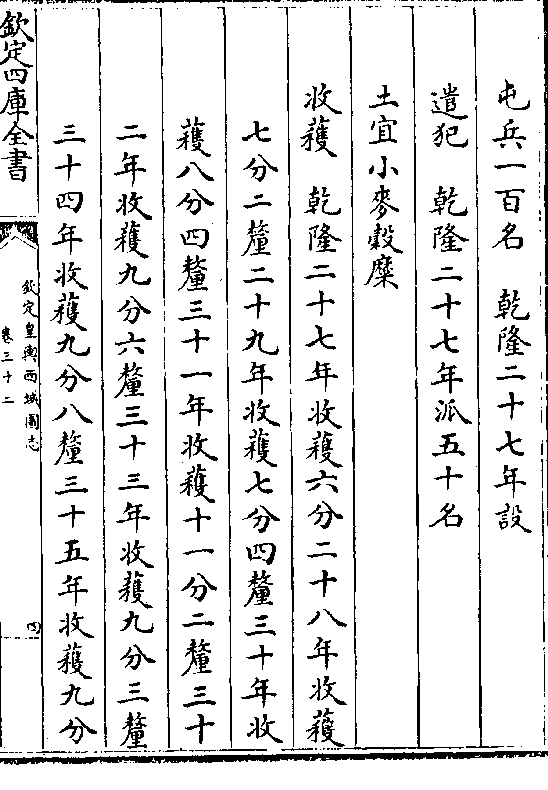 屯兵一百名　乾隆二十七年設
遣犯　乾隆二十七年派五十名
土宜小麥穀糜
收穫　乾隆二十七年收穫六分二十八年收穫
七分二釐二十九年收穫七分四釐三十年收
穫八分四釐三十一年收穫十一分二釐三十
二年收穫九分六釐三十三年收穫九分三釐
三十四年收穫九分八釐三十五年收穫九分
欽定四庫全書
欽定皇輿西域圖志
卷三十二
四